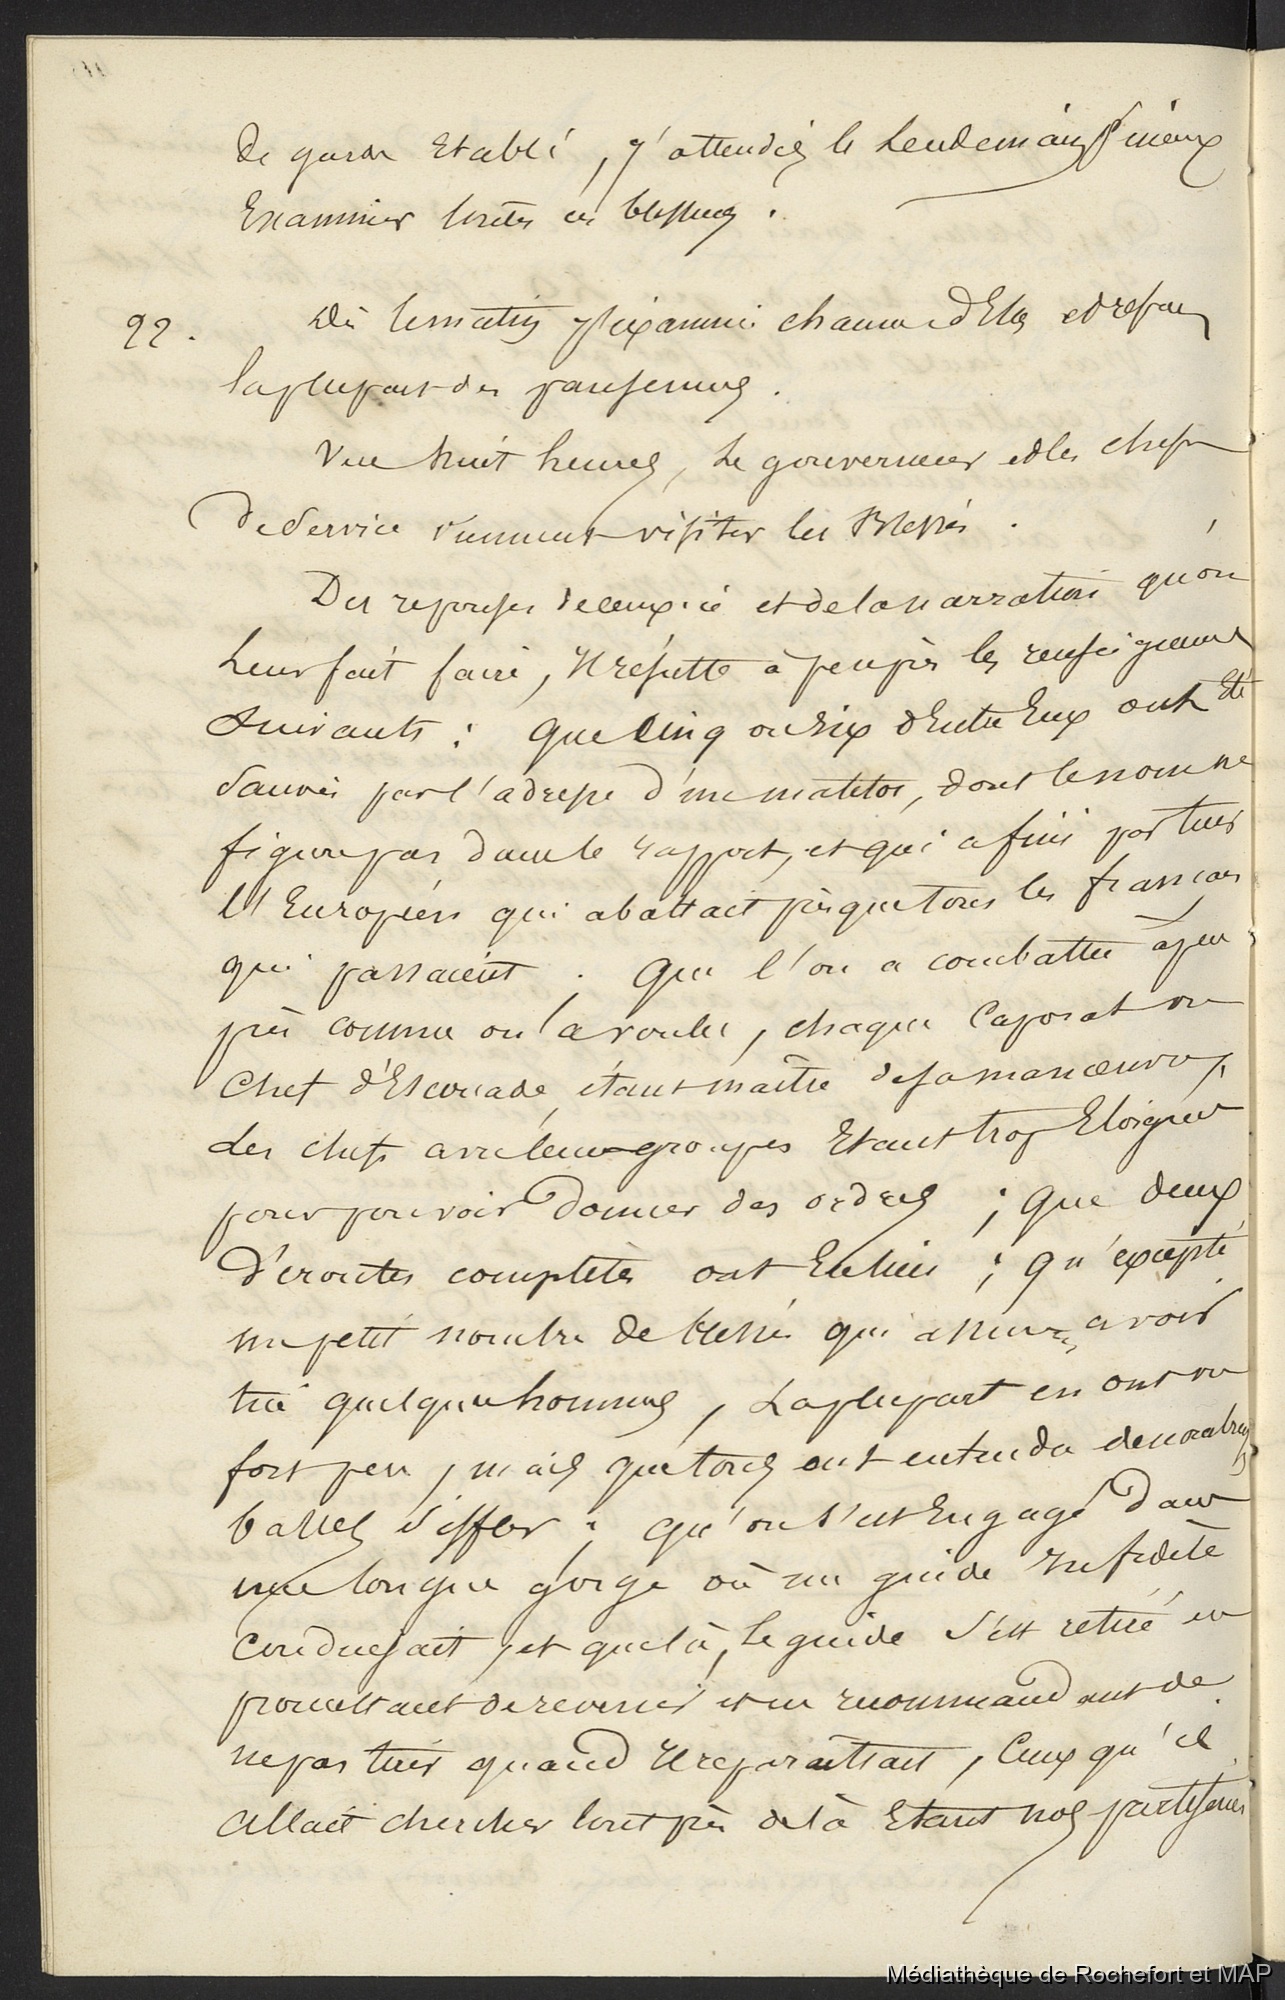 de garde Etabli, j'attendis le Lendemain pr mieux
Examiner toutes ces blessures.
22. Dès le matin j'examinai chacun d'Eux et refais
la plupart des pansemens.
Vers huit heures, Le gouverneur et les chefs
de Service viennent visiter les Blessés.
Des reponses de ceux-ci et de la narration qu'on
Leur fait faire, Il résulte à peu près les renseignemens
Suivants : Que Cinq ou Six d'Entre Eux ont Eté
Sauvés par l'adresse d'un matelot, dont le nom ne
figure pas dans le rapport, et qui a fini par tuer
l'Européen qui abattait presque tous les français
qui passaient. Que l'on a combattu à peu
près comme on l'a voulu, chaque Caporal ou
Chef d'Escouade, étant maître de sa manoeuvre,
des chefs avec leurs groupes Etant trop Eloignés
pour pouvoir donner des ordres ; Que deux
déroutes complètes ont Eu lieu ; Qu'excepté
un petit nombre de blessés qui assurent avoir
tué quelques hommes, La plupart en ont vu
fort peu, mais que tous ont entendu de nombreuses
balles Siffler ; Qu'on s'est Engagé dans
une longue gorge où un guide Infidèle
Conduisait, et que là, Le guide S'est retiré en
promettant de revenir et en recommandant de
ne pas tirer quand Il reparaîtrait, Ceux qu'il
allait chercher tout près de là Etant nos partisans
Médiathèque de Rochefort et MAP